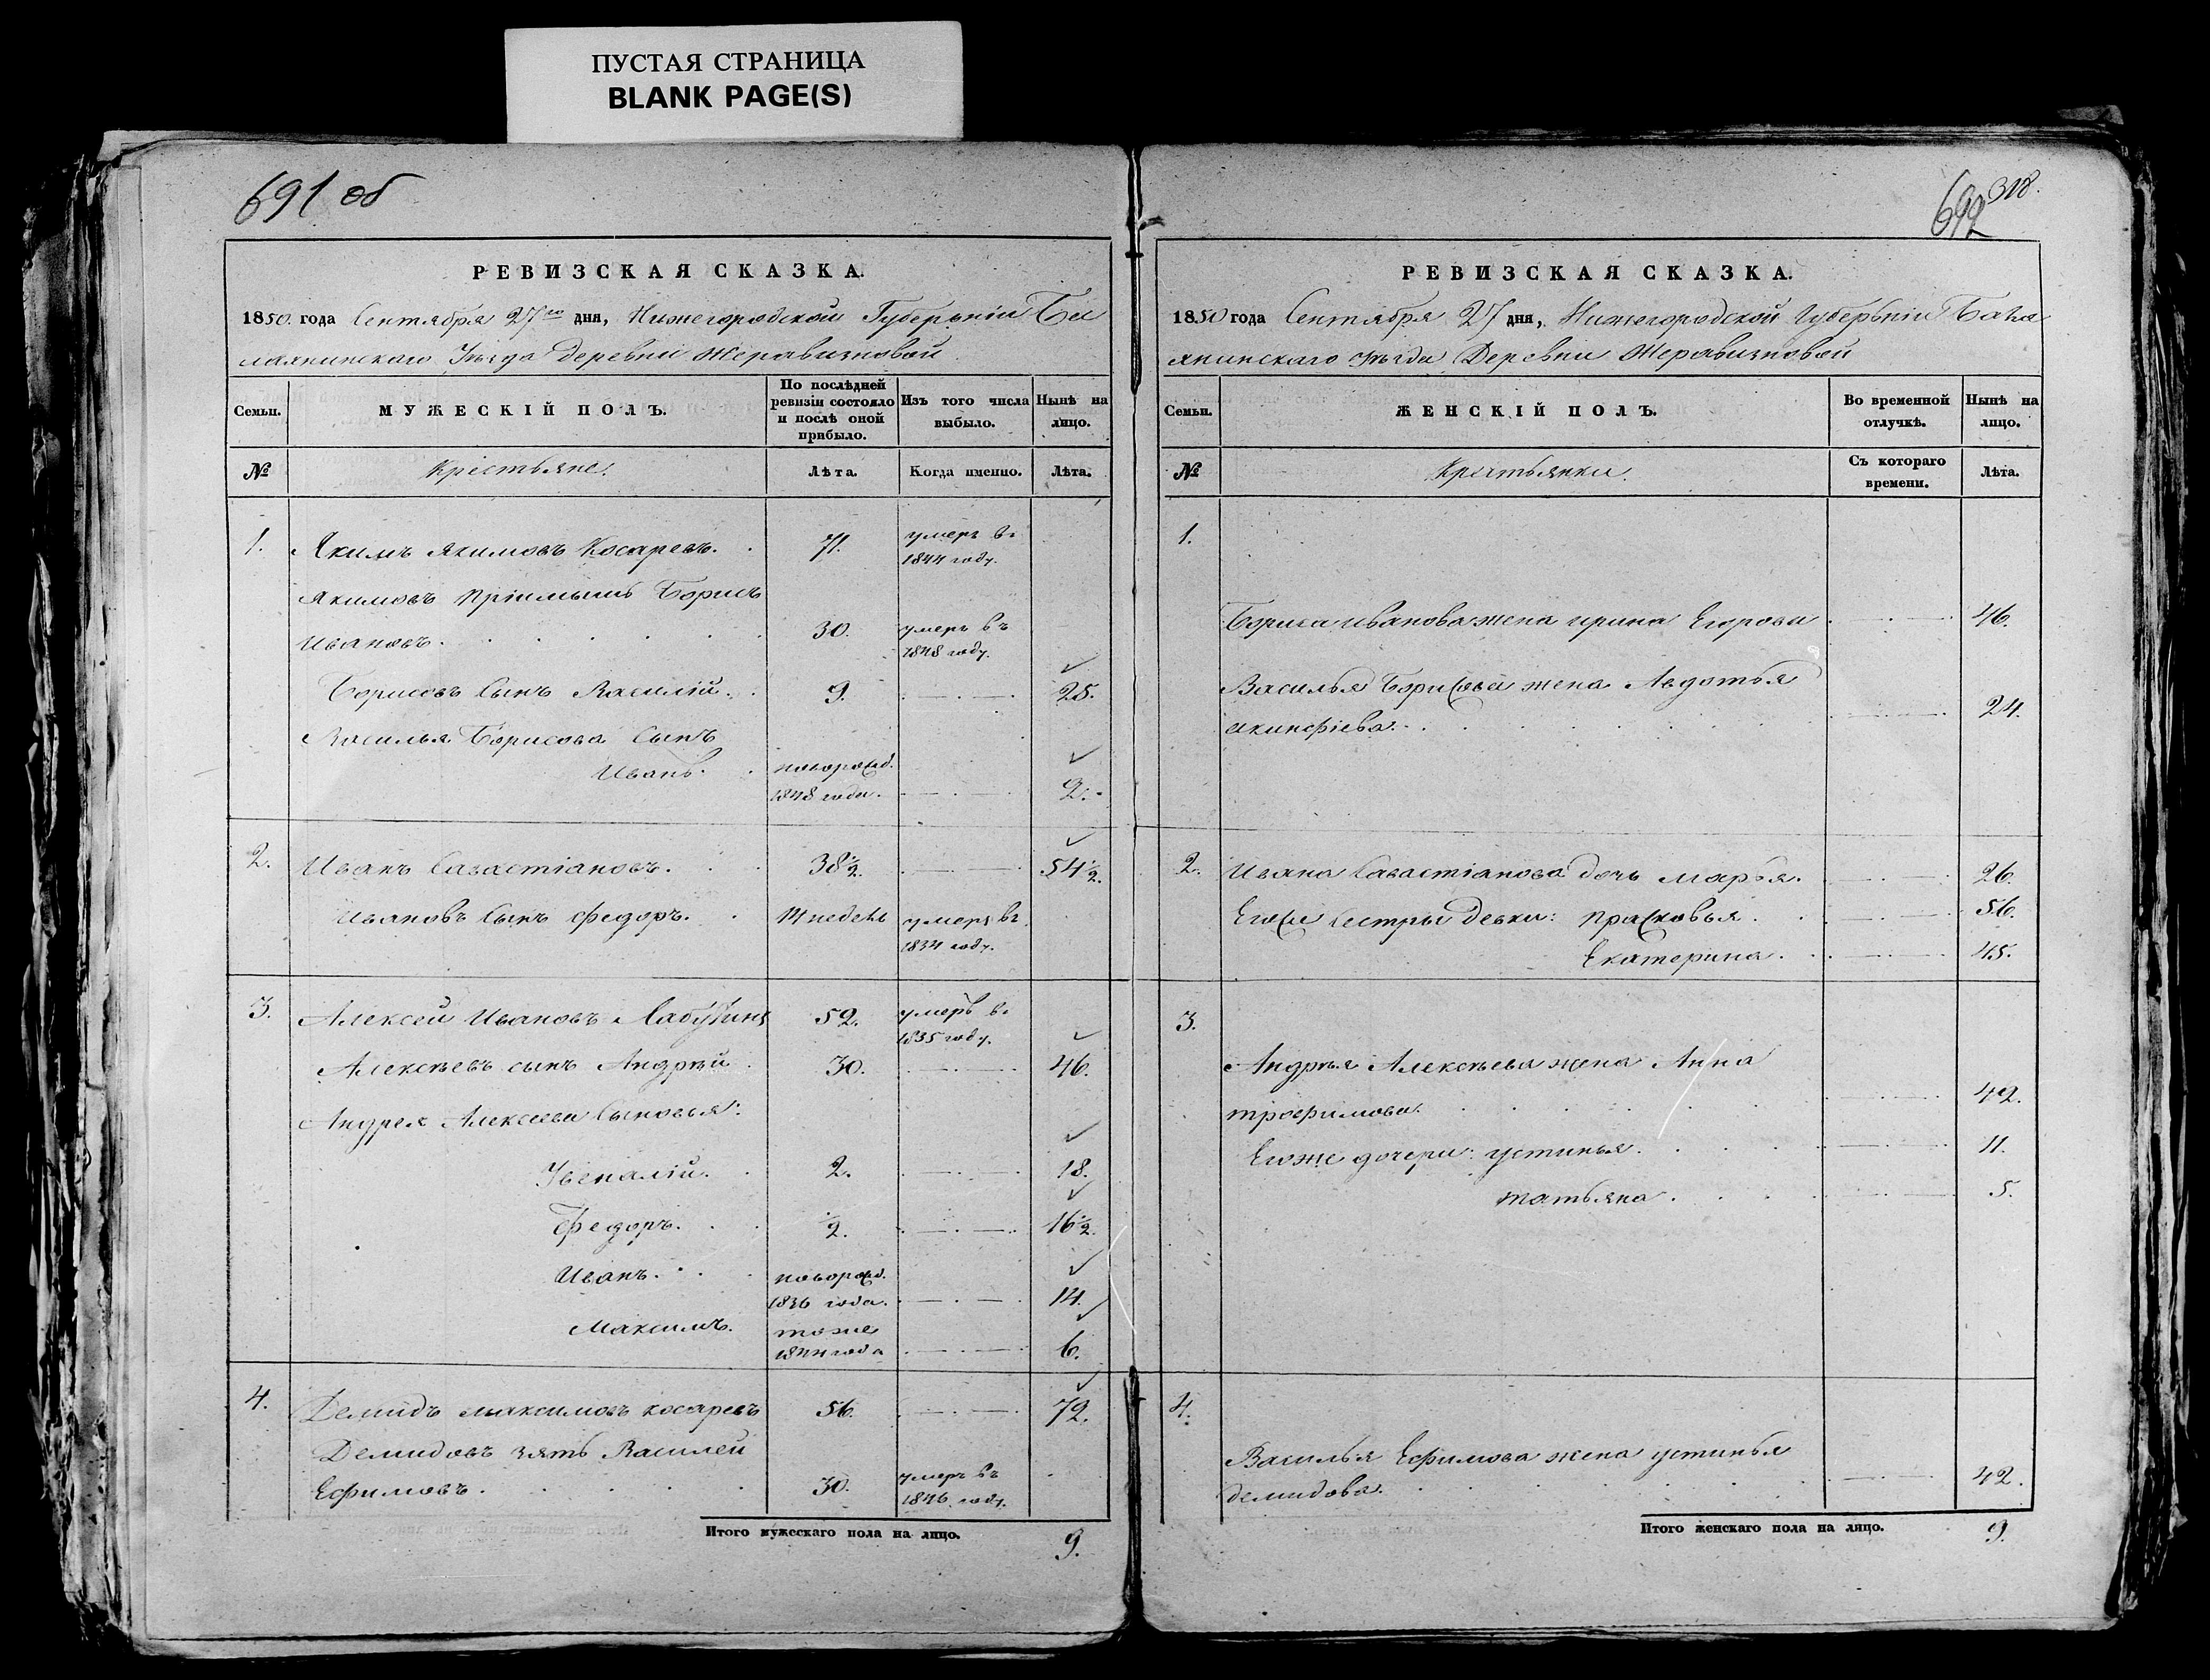 ПУСТАЯ СТРАНИЦА
BLANK PAGE(S)
691 об
РЕВИЗСКАЯ СКАЗКА.
1850 года Сентября 27го дня, Нижегородской Губерьнiи Бал
лахнинскаго Уѣзда деревни
Семьи.
МУЖЕСКІЙ ПОЛЪ.
По послѣдней ревизіи состояло и послѣ оной прибыло.
Изъ того числа выбыло.
Нынѣ на лицо.
№
Крестьяне.
Лѣта.
Когда именно.
Лѣта.
1. Якимъ Якимовъ Косаревъ. 71. умеръ въ
1844 году.
Якимовъ пріимышъ Борисъ
Ивановъ. 30. умеръ въ
1848 году.
Борисовъ Сынъ Василій. 9. 25.
Василья Борисова Сынъ
Иванъ. новорожд.
1848 года. 2.
2. Иванъ Савастіановъ. 38 1/2. 54 1/2.
Ивановъ Сынъ Федоръ. 14 недель умеръ въ
1834 году.
3. Алексей Ивановъ 52. умеръ въ
1835 году.
Алексѣевъ сынъ Андрѣй 30. 46.
Андрея Алексеева Сыновья:
Увеналій. 2. 18.
Федоръ. 1/2. 16 1/2.
Иванъ. новорожд.
1836 года. 14.
Максимъ. тоже
1844 года 6.
4. Демидъ Максимовъ Косаревъ 56. 72.
Демидовъ зять Василей
Ефимовъ. 30. умеръ въ
1846 году.
Итого мужескаго пола на лицо. 9.
692
318.
РЕВИЗСКАЯ СКАЗКА.
1850 года Сентября 27 дня, Нижегородской Губерьніи Бала
хнинскаго уѣзда Деревни
Семьи.
ЖЕНСКІЙ ПОЛЪ.
Во временной отлучкѣ.
Нынѣ на лицо.
№
Крестьянки.
Съ котораго времени.
Лѣта.
1.
Бориса Иванова жена Ирина Егорова 46.
Василья Борисова жена Авдотья
акинфіева. 24.
2. Ивана Савастіанова дочь Марья. 26.
Егоже Сестры девки: Прасковья. 56.
Екатерина. 45.
3.
Андрѣя Алексѣева жена Анна
трофимова. 42.
Егоже дочери: устинья. 11.
татьяна. 5.
4.
Василья Ефимова жена устинья
демидова. 42.
Итого женскаго пола на лицо. 9.